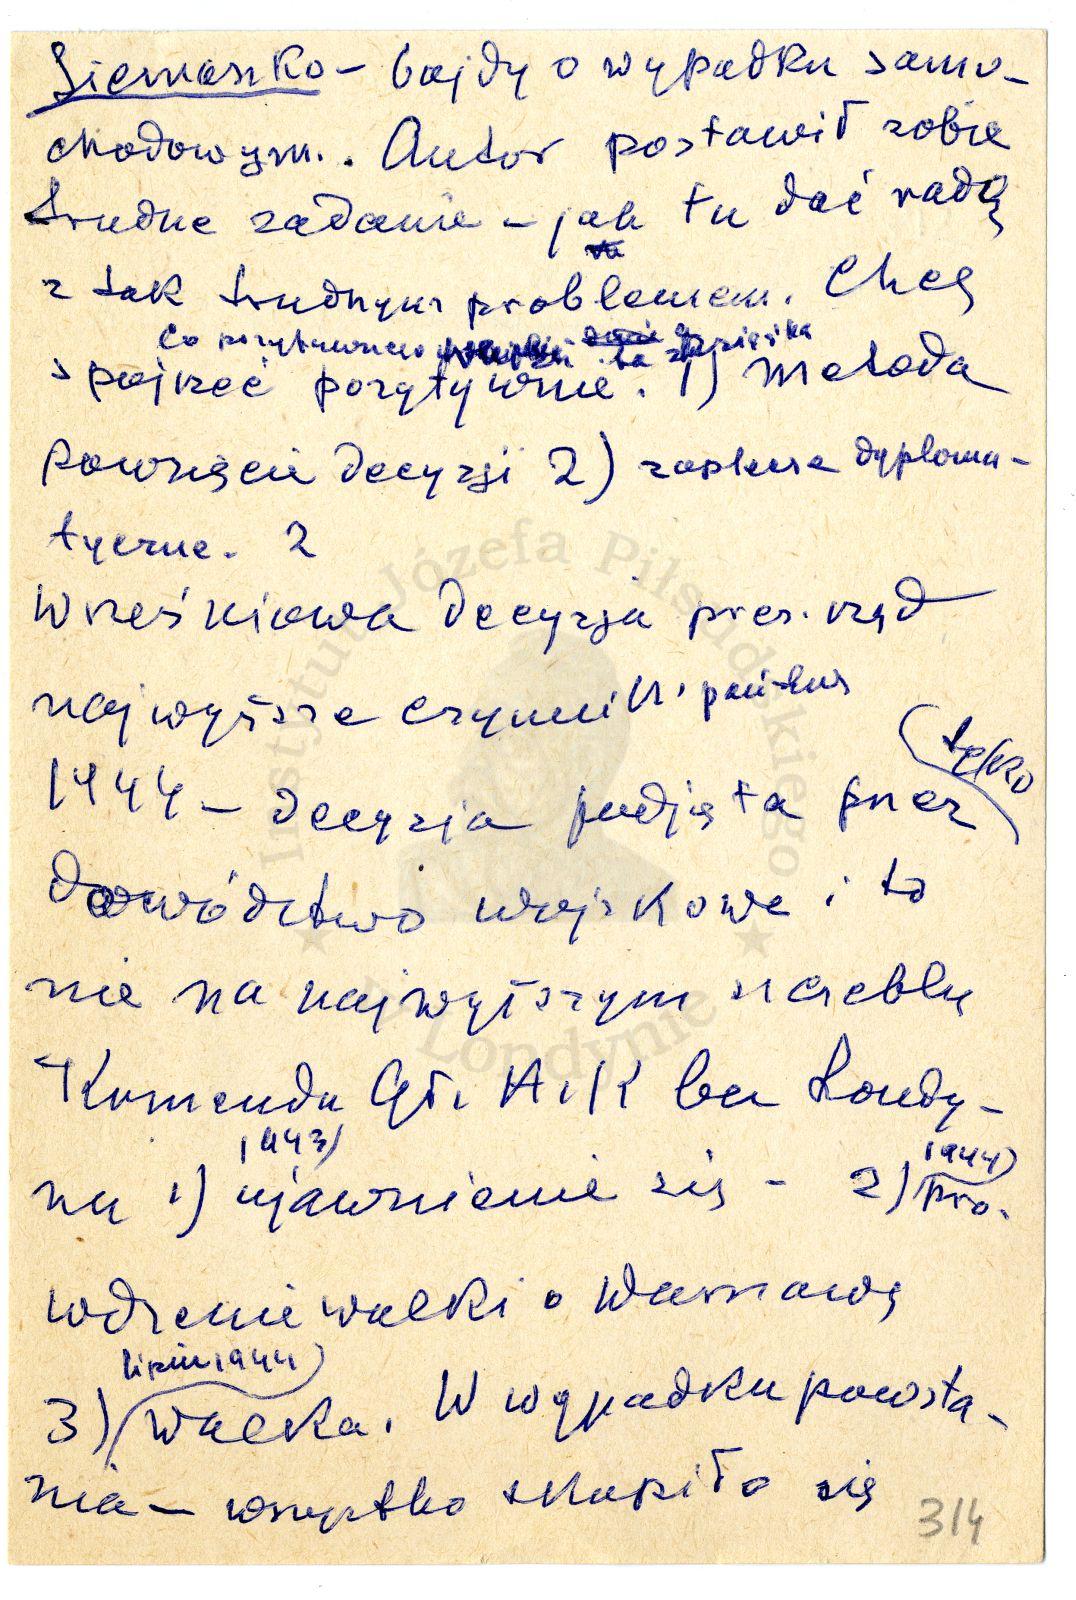 Siemaszko – bajdy o wypadku samo-
chodowym.. Autor postawił sobie
trudne zadanie – jak tu dać radę
z tak trudnym problemem. Chcę
Co pozytywnego ta książka
spojrzeć pozytywnie. 1) Metoda
powzięcie decyzji 2) zaplecze dyploma-
tyczne. 2
Wrześniowa decyzja prez. rząd
najwyższe czynnik. państwa
1944 – decyzja podjęta przez (tylko
dowództwo wojskowe i to
nie na najwyższym szczeblu
Komenda Gł. A.K bez Londy-
1943) 1944)
nu 1) ujawnienie się – 2) pro.
wdzenie walki o Warszawę
lipiec 1944)
3) Walka. W wypadku powsta-
nia – wszystko skupiło się
314
Instytut Józefa Piłsudskiego
w Londynie